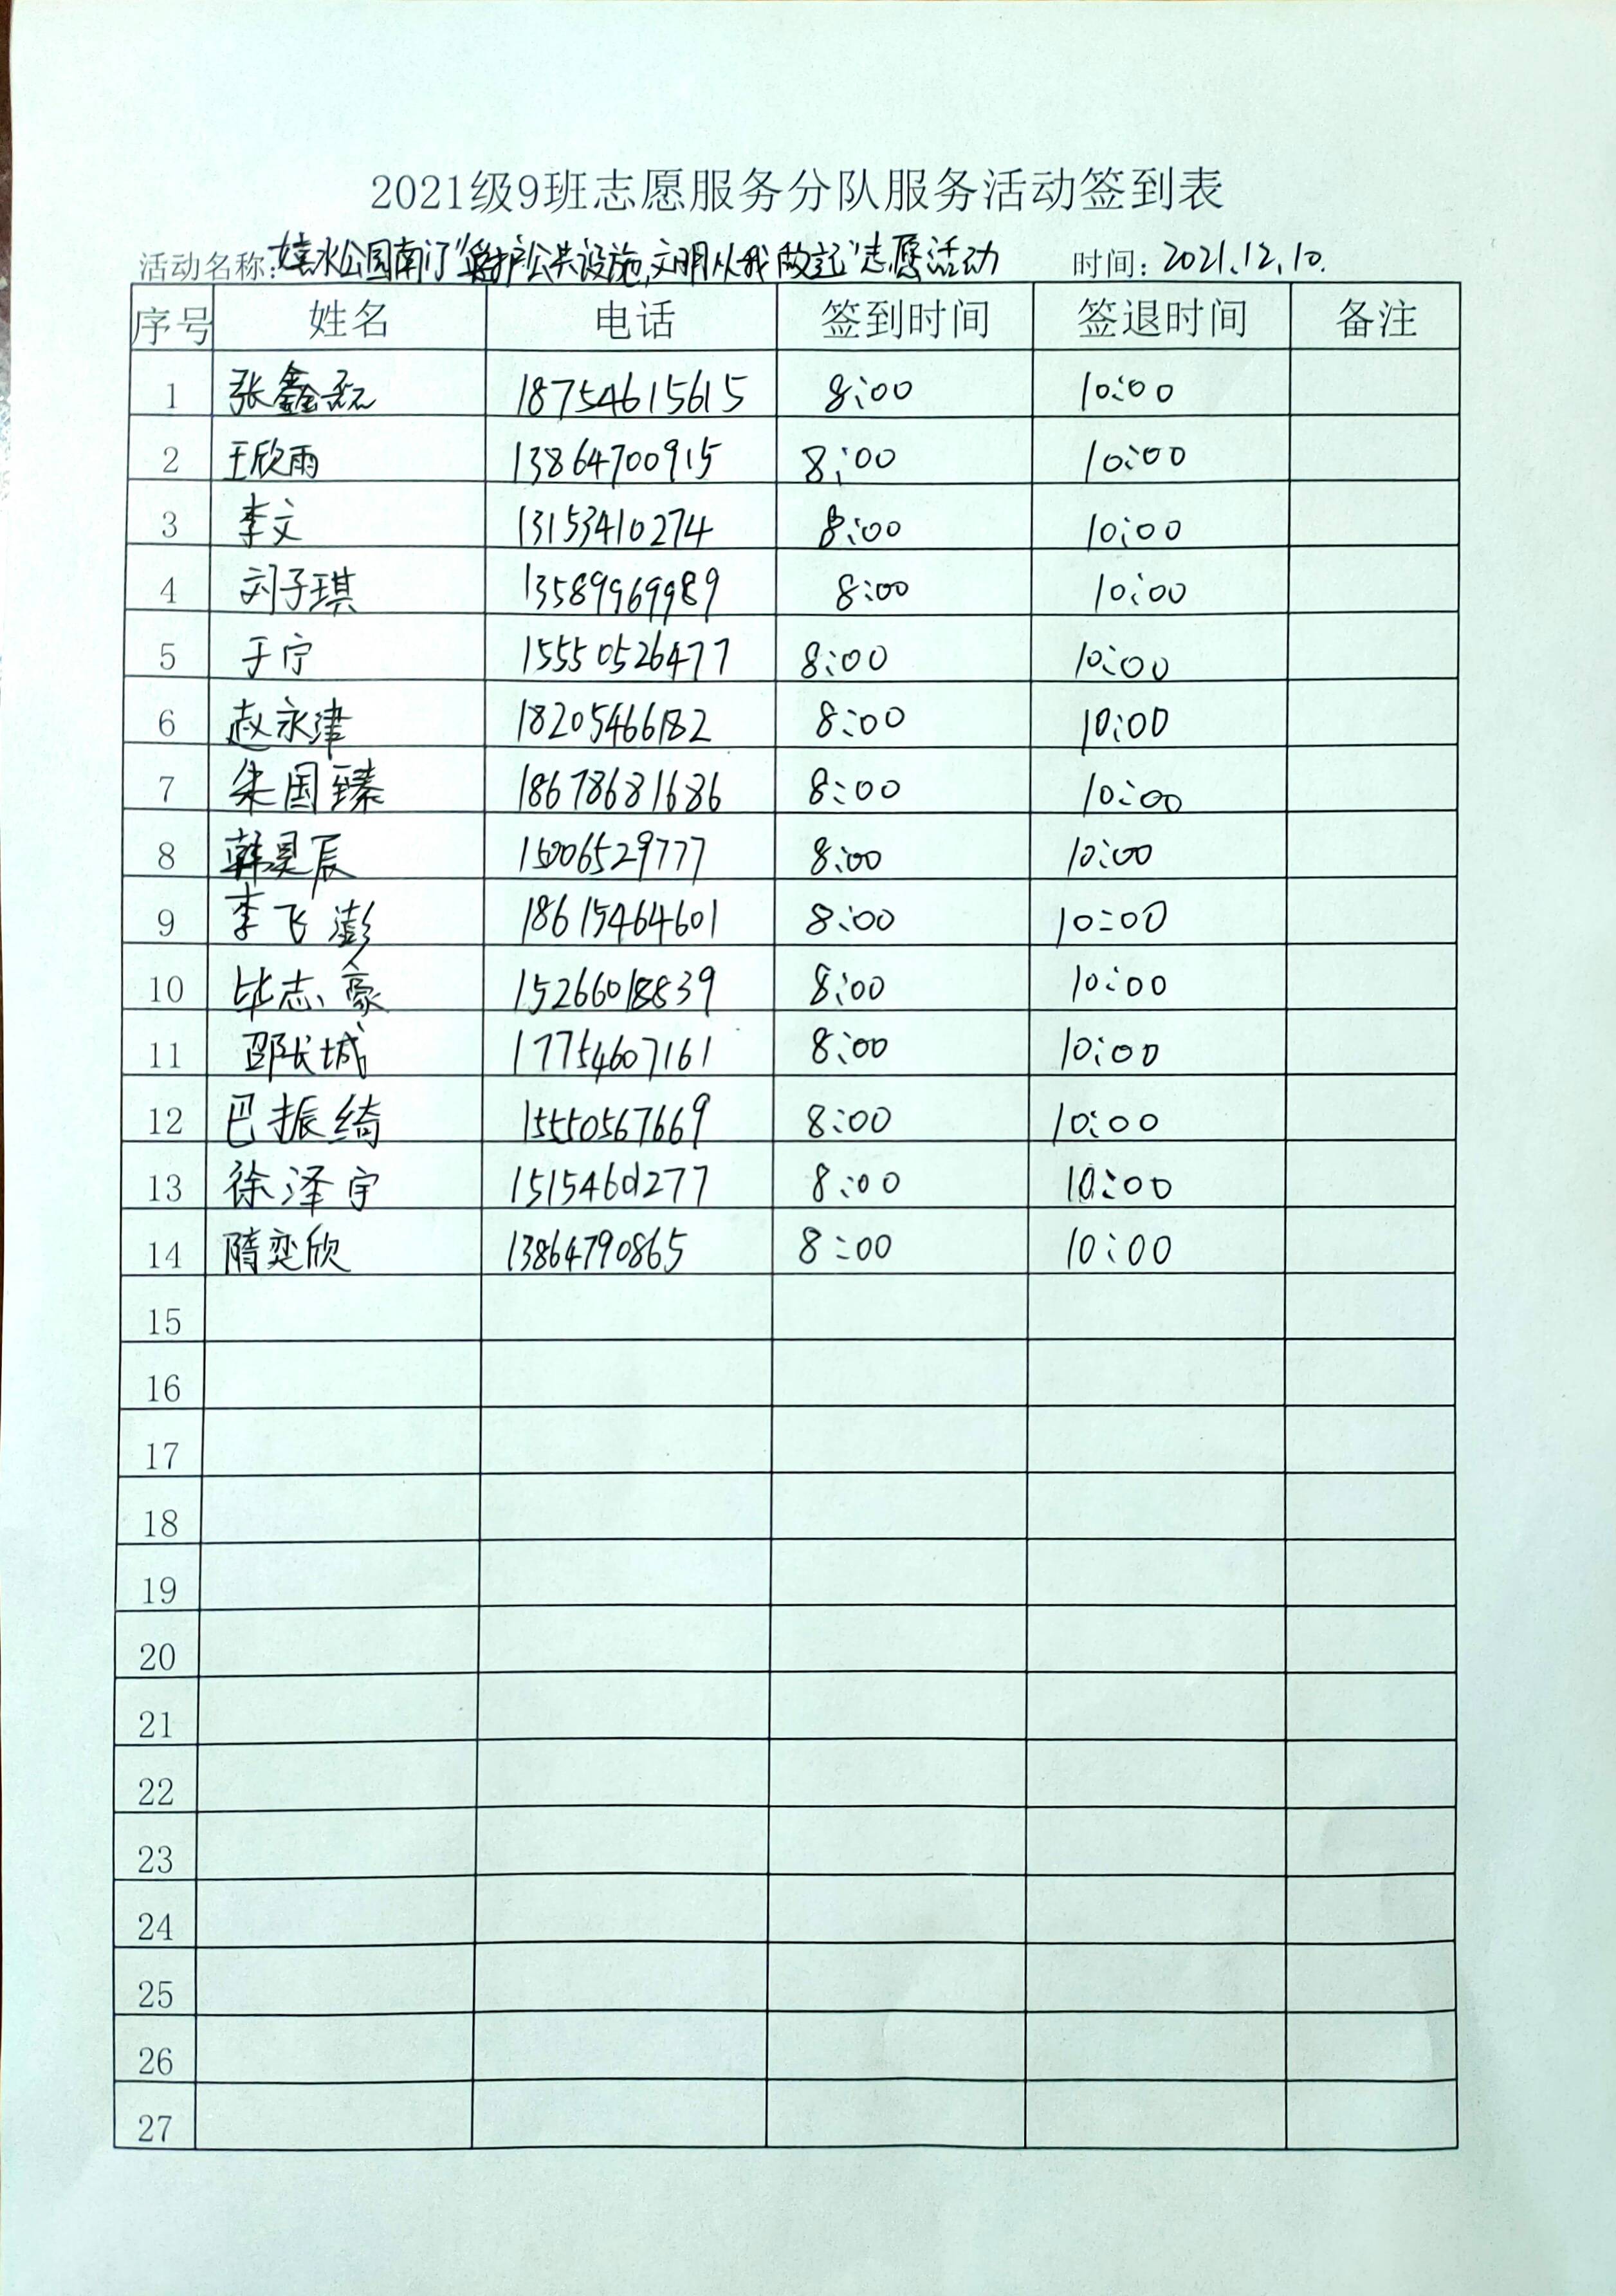 2021级9班志愿服务分队服务活动签到表
活动名称:嬉水公园南门"维护公共设施,文明从我做起"志愿活动 时间:2021.12.10.
序号 姓名 电话 签到时间 签退时间 备注
1 张鑫磊 18754615615 8:00 10:00
2 王欣雨 13864700915 8:00 10:00
3 李文 13153410274 8:00 10:00
4 刘子琪 13589969989 8:00 10:00
5 于宁 15550526477 8:00 10:00
6 赵永津 18205466182 8:00 10:00
7 朱国臻 18678681686 8:00 10:00
8 韩昊辰 15006529777 8:00 10:00
9 李飞澎 18615464601 8:00 10:00
10 毕志豪 15266018839 8:00 10:00
11 邵长城 17754607161 8:00 10:00
12 巴振绮 15550567669 8:00 10:00
13 徐泽宇 8:00 10:00
14 隋奕欣 13864790865 8:00 10:00
15
16
17
18
19
20
21
22
23
24
25
26
27